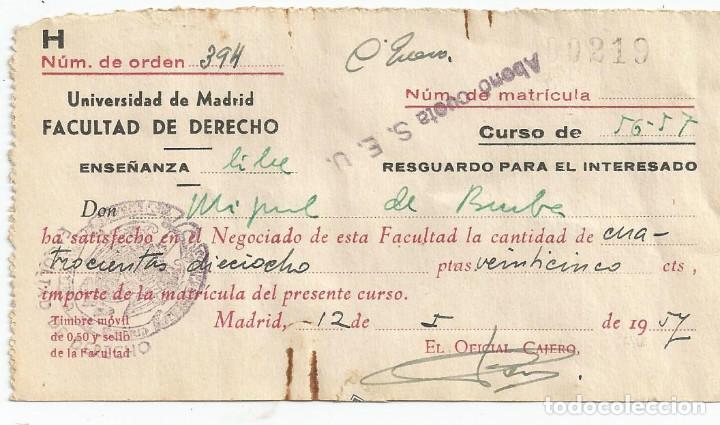 H
Núm. de orden 394
Cª Enero.
00219
Abonó cuota S. E. U.
Universidad de Madrid
Núm. de matrícula
FACULTAD DE DERECHO
Curso de 56-57
ENSEÑANZA libre
RESGUARDO PARA EL INTERESADO
Don Miguel de
ha satisfecho en el Negociado de esta Facultad la cantidad de cua-
trocientas dieciocho ptas veinticinco cts,
importe de la matrícula del presente curso.
Timbre móvil
de 0,50 y sello
de la Facultad
Madrid, -12 de I de 1957
EL OFICIAL CAJERO,
DERECHO
todocoleccion.net